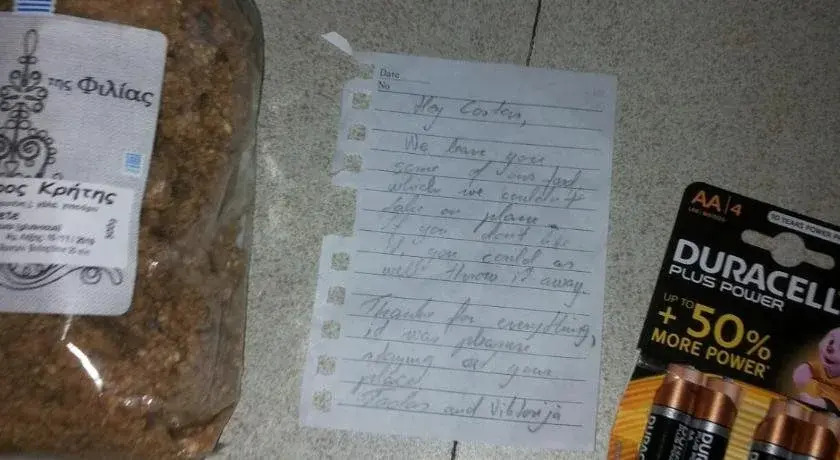 της Φιλίας
ρος Κρήτης
500g
Date
No
Hey
We leave you
some of our food
which we couldn't
take on plane.
If you don't like
it you could as
well throw it away.
Thanks for everything,
it was pleasure
staying at your
place
and Viktorija
AA 4
DURACELL
PLUS POWER
UP TO
+ 50%
MORE POWER*
DURACELL